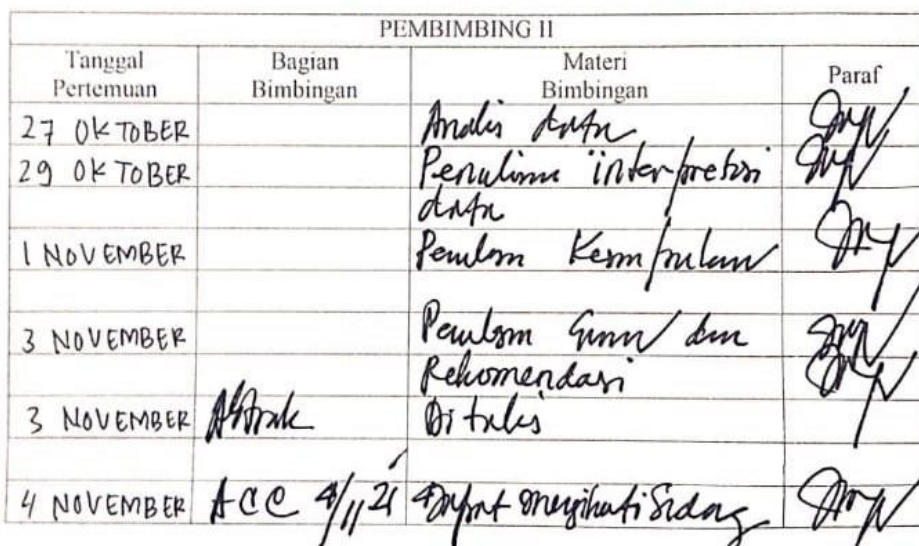 PEMBIMBING II
Tanggal Pertemuan Bagian Bimbingan Materi Bimbingan Paraf
27 OKTOBER Analis data
29 OKTOBER Penulisan interpretasi
data
1 NOVEMBER Penulisan Kesimpulan
3 NOVEMBER Penulisan Saran dan
Rekomendasi
3 NOVEMBER Abstrak Ditulis
4 NOVEMBER ACC 4/11 21 Dapat mengikuti Sidang